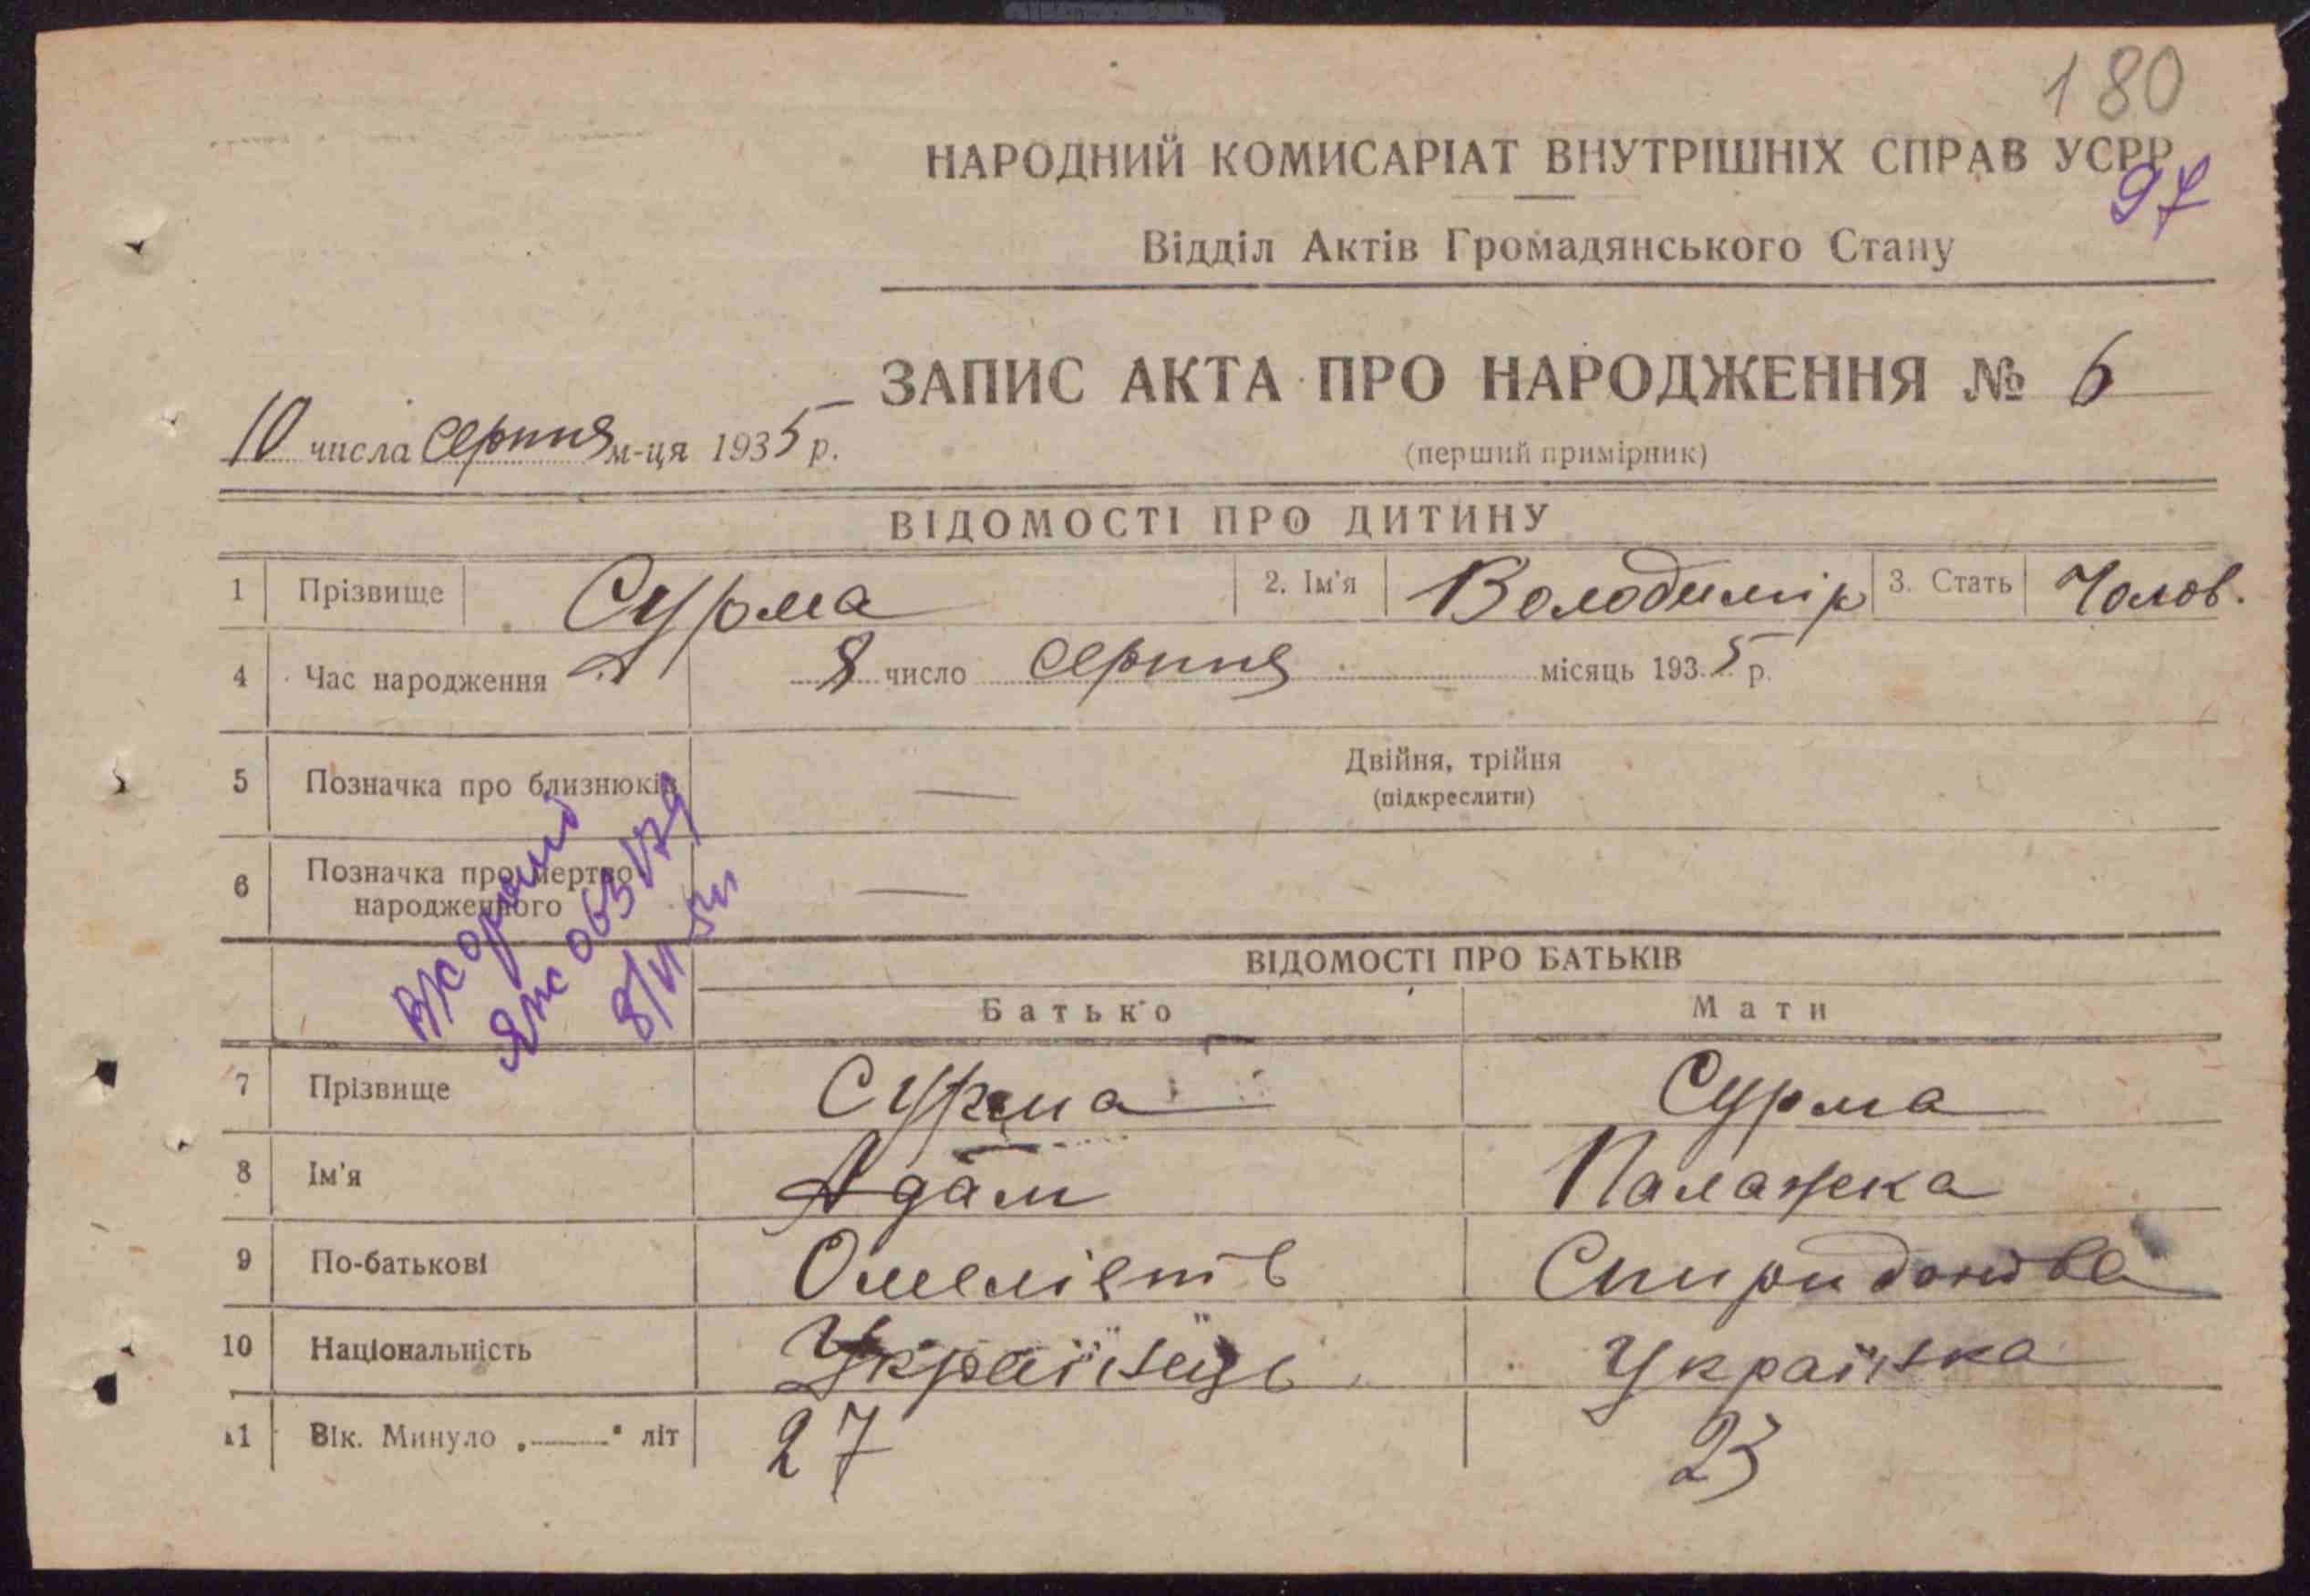 180
НАРОДНИЙ КОМИСАРІАТ ВНУТРІШНІХ СПРАВ УСРР
97
Відділ Актів Громадянського Стану
ЗАПИС АКТА ПРО НАРОДЖЕННЯ № 6
10 числа серпня м-ця 1935 р.
(перший примірник)
ВІДОМОСТІ ПРО ДИТИНУ
1 Прізвище Сурма 2. Ім'я Володимір 3. Стать Чолов.
4 Час народження 8 число серпня місяць 1935 р.
5 Позначка про близнюків — Двійня, трійня
(підкреслити)
6 Позначка про мертво —
народженного
ВІДОМОСТІ ПРО БАТЬКІВ
Батько Мати
7 Прізвище Сурма Сурма
8 Ім'я Адам Палажка
9 По-батькові Омелієв Спиридонова
10 Національність Українець Українка
11 Вік. Минуло „——" літ 27 23